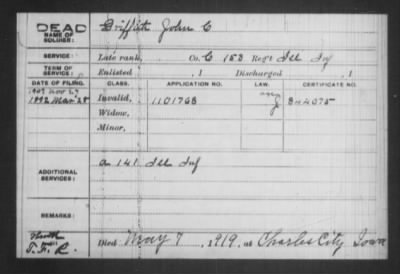 DEAD
NAME OF SOLDIER:
Griffith John C.
SERVICE:
Late rank, Co. C 153 Reg't Ill Inf
TERM OF SERVICE:
Enlisted , 1 Discharged , 1
DATE OF FILING. CLASS. APPLICATION NO. LAW. CERTIFICATE NO.
1892 Mar 28 Invalid, 1101768 844075
Widow,
Minor,
ADDITIONAL SERVICES:
a 141 Ill Inf
REMARKS:
Died May 7, 1919, at Charles City Iowa